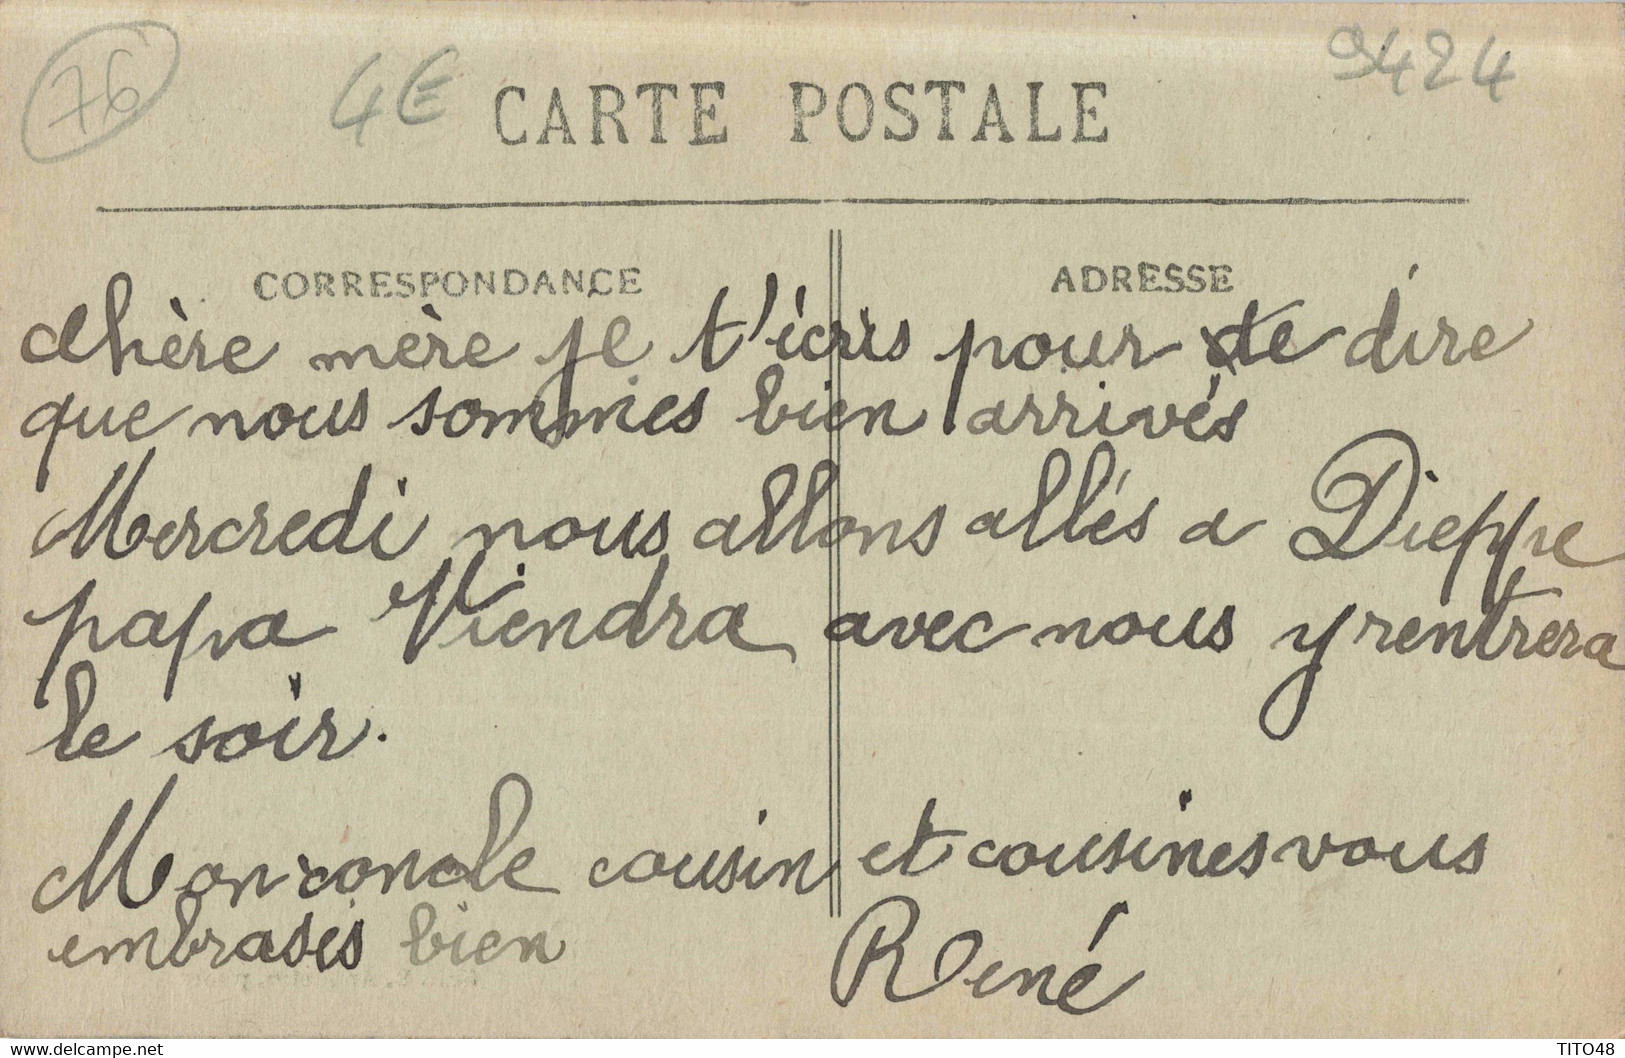 76 4€ 9424
CARTE POSTALE
CORRESPONDANCE ADRESSE
Chère mère je t'écris pour te dire
que nous sommes bien arrivés
Mercredi nous allons allés a Dieppe
papa Viendra avec nous y rentrera
le soir.
Mon concle cousin et cousines vous
embrasis bien
René
www.delcampe.net TITO48